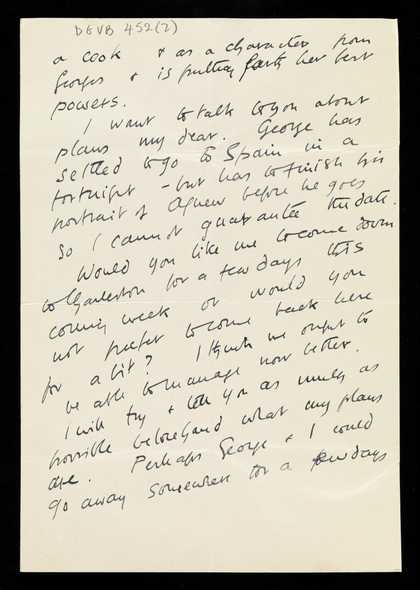 DEVB 452(2)
a cook & as a character from
Georges & is putting forth her best
powers.
I want to talk to you about
plans my dear. George has
settled to go to Spain in a
fortnight - but has to finish his
portrait of Agnew before he goes
So I cannot guarantee the date.
Would you like me to come down
to Charleston for a few days this
coming week or would you
not prefer to come back here
for a bit? I think we ought to
be able to manage now better.
I will try & tell you as much as
possible beforehand what my plans
are. Perhaps George & I could
go away somewhere for a few days